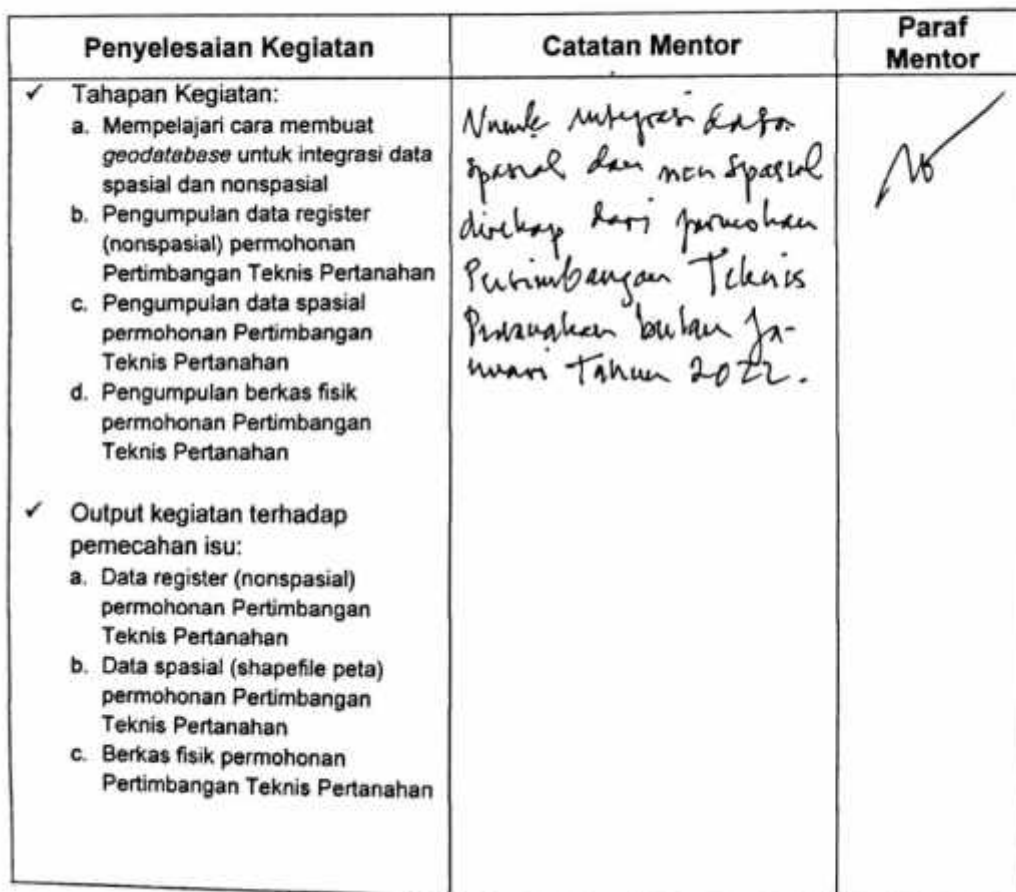 Penyelesaian Kegiatan
Catatan Mentor
Paraf
Mentor
✓ Tahapan Kegiatan:
a. Mempelajari cara membuat
geodatabase untuk integrasi data
spasial dan nonspasial
b. Pengumpulan data register
(nonspasial) permohonan
Pertimbangan Teknis Pertanahan
c. Pengumpulan data spasial
permohonan Pertimbangan
Teknis Pertanahan
d. Pengumpulan berkas fisik
permohonan Pertimbangan
Teknis Pertanahan
✓ Output kegiatan terhadap
pemecahan isu:
a. Data register (nonspasial)
permohonan Pertimbangan
Teknis Pertanahan
b. Data spasial (shapefile peta)
permohonan Pertimbangan
Teknis Pertanahan
c. Berkas fisik permohonan
Pertimbangan Teknis Pertanahan
integrasi data
spasial dan non spasial
direkap dari permohonan
Pertimbangan Teknis
Pertanahan bulan Ja-
nuari Tahun 2022.